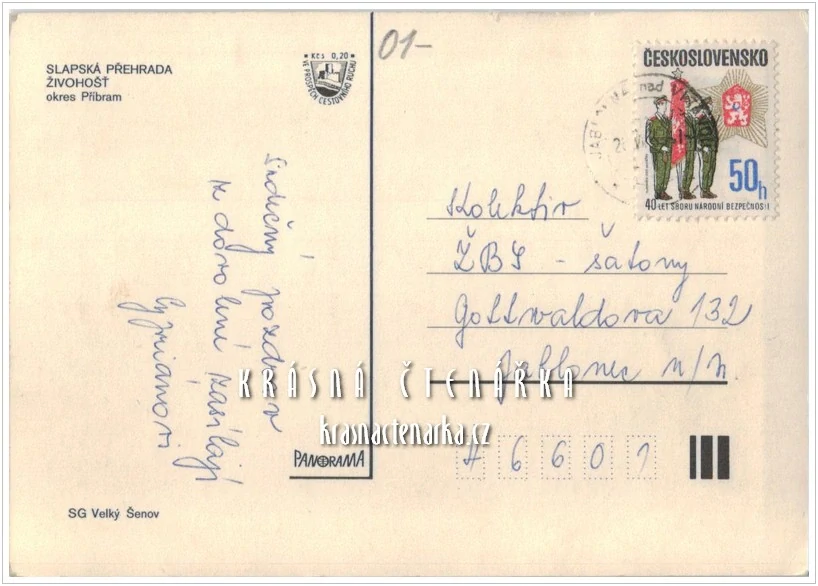 SLAPSKÁ PŘEHRADA
ŽIVOHOŠŤ
okres Příbram
Kčs 0,20
VE PROSPĚCH CESTOVNÍHO RUCHU
01-
ČESKOSLOVENSKO
50h
40 LET SBORU NÁRODNÍ BEZPEČNOSTI
nad
Srdečný pozdrav
z dovolené zasílají
Cypriánovi
Kolektiv
ŽBS - šatony
Gottwaldova 132
Jablonec n/N.
46601
KRÁSNÁ ČTENÁŘKA
krasnactenarka.cz
PANORAMA
SG Velký Šenov